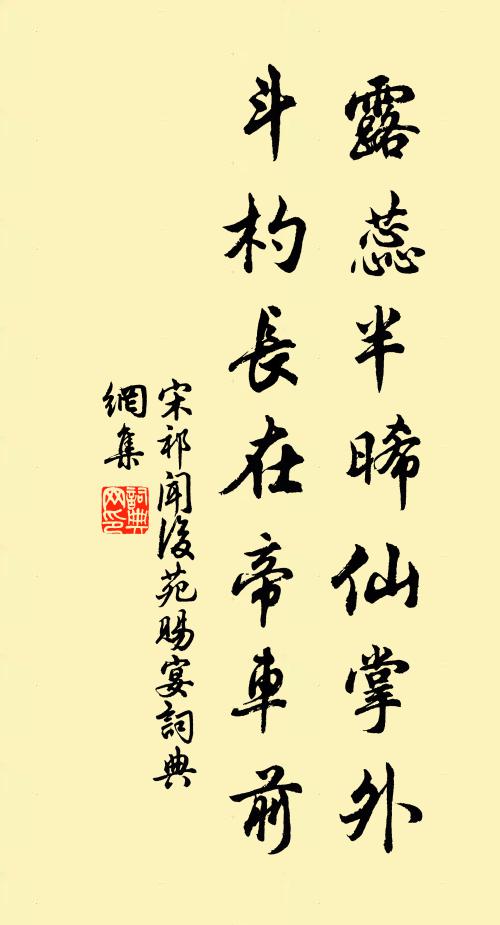 露蕊半晞仙掌外
斗杓長在帝車前
宋祁聞後苑賜宴詞典
網集
詞典
网印